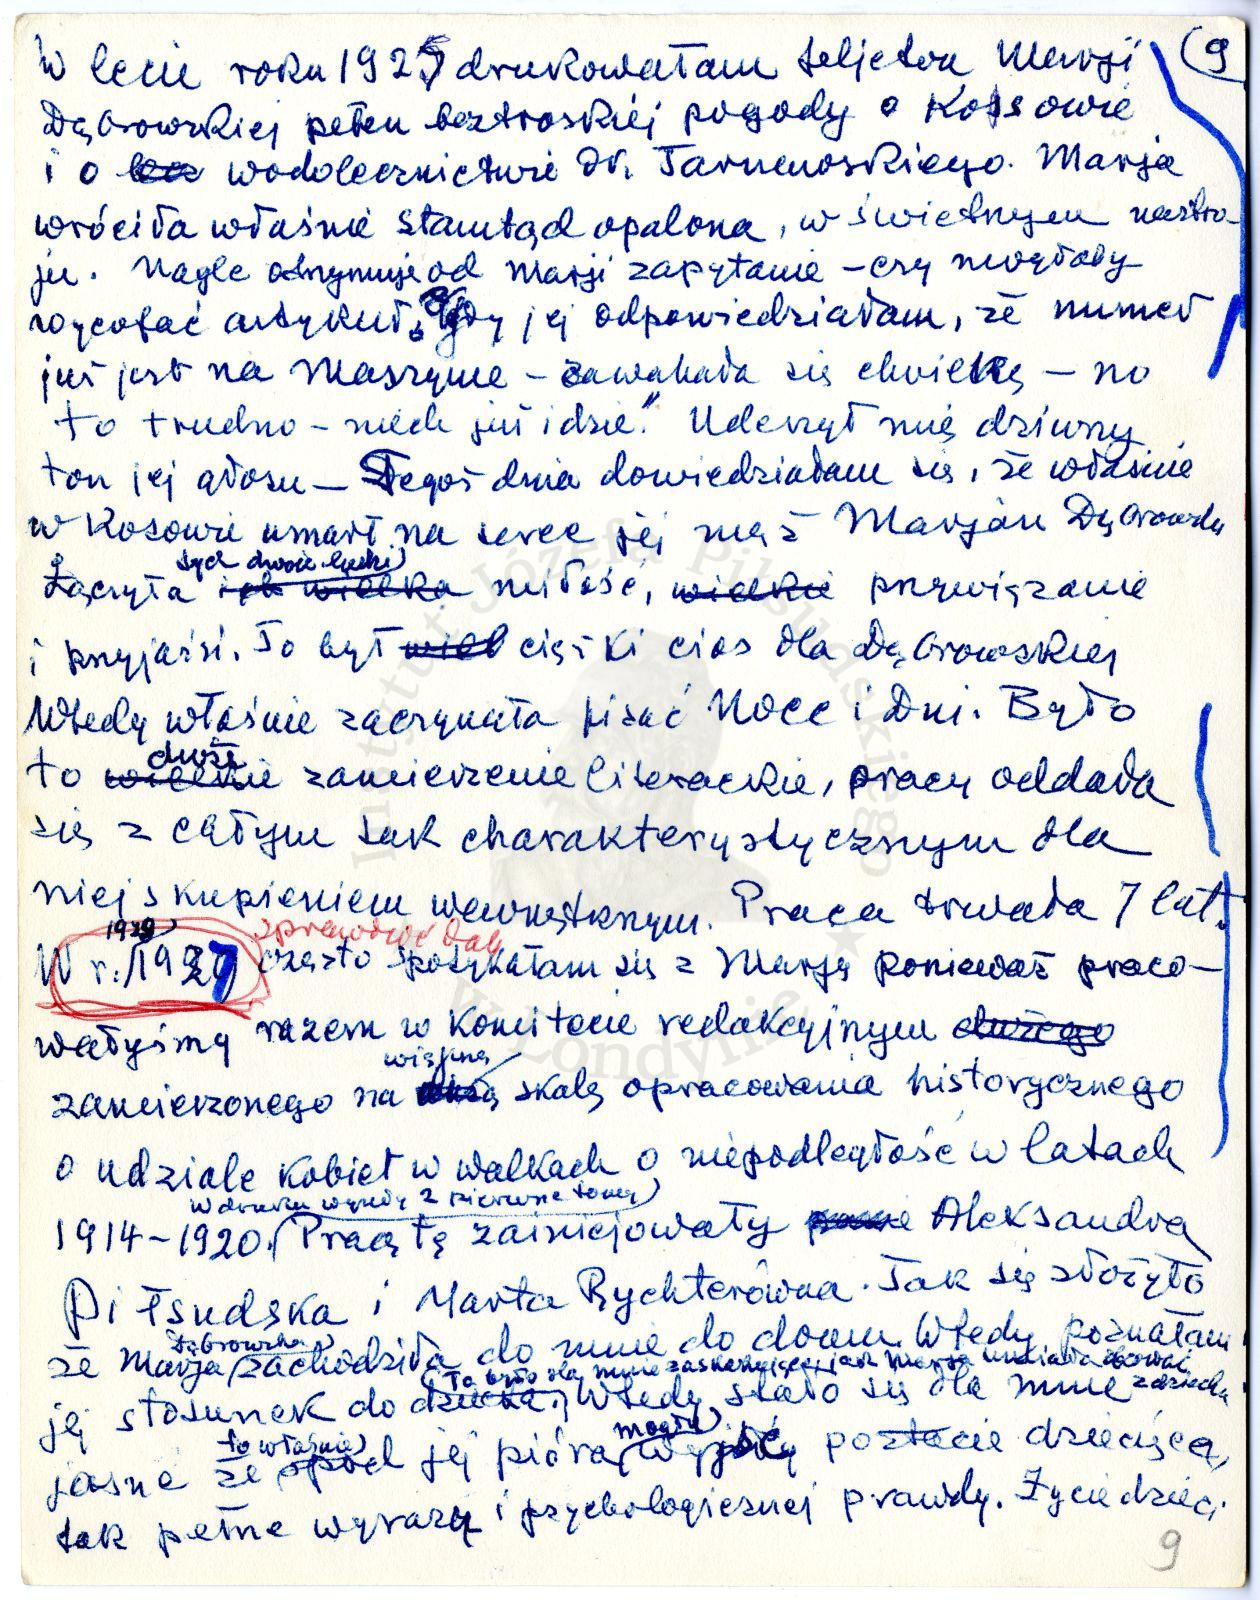 (9
W lecie roku 1925 drukowałam feljeton Marji
Dąbrowskiej pełen beztroskiej pogody o Kossowie
i o wodolecznictwie Dr. Tarnawskiego. Marja
wróciła właśnie stamtąd opalona, w świetnym nastro-
ju. Nagle otrzymuję od Marji zapytanie – czy mogłaby
wycofać artykuł, gdy jej odpowiedziałam, że numer
już jest na maszynie – zawahała się chwilkę – no
to trudno – niech już idzie". Uderzył mię dziwny
ton jej głosu – Tegoż dnia dowiedziałam się, że właśnie
w Kosowie umarł na serce jej mąż Marjan Dąbrowski
tych dwoje ludzi
Łączyła ich wielka miłość, wielkie przywiązanie
i przyjaźń. To był ciężki cios dla Dąbrowskiej
Wtedy właśnie zaczynała pisać Noce i Dni. Było
duże
to wielkie zamierzenie literackie, pracy oddała
się z całym tak charakterystycznym dla
niej skupieniem wewnętrznym. Praca trwała 7 lat.
1929 sprawdzić datę
W r. 1927 często spotykałam się z Marją ponieważ praco-
wałyśmy razem w Komitecie redakcyjnym dużego
większą
zamierzonego na skalę opracowania historycznego
o udziale kobiet w walkach o niepodległość w latach
W druku wyszły 2 pierwsze tomy
1914–1920. Pracę tę zainicjowały Aleksandra
Piłsudska i Marta Rychterówna. Tak się złożyło
Dąbrowska
że Marja zachodziła do mnie do domu. Wtedy poznałam
To było dla mnie zaskakujące, jak Marja umiała
z dziećmi
jej stosunek do dziecka. Wtedy stało się dla mnie
to właśnie mogły
jasne że spod jej pióra wyjść postacie dziecięce,
tak pełne wyrazu i psychologicznej prawdy. Życie dzieci
9
Instytut Józefa Piłsudskiego
w Londynie